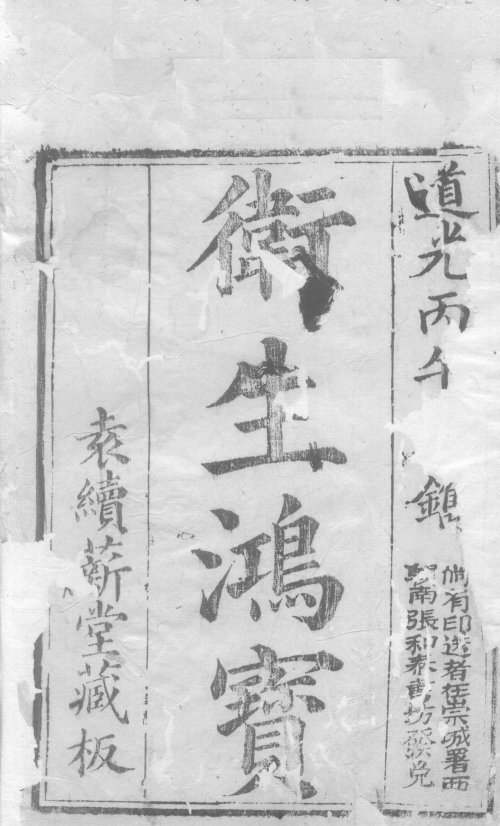 道光丙午 鐫
倘有印送者在崇城署西
南張和泰書坊發兌
衛生鴻寶
袁續薪堂藏板